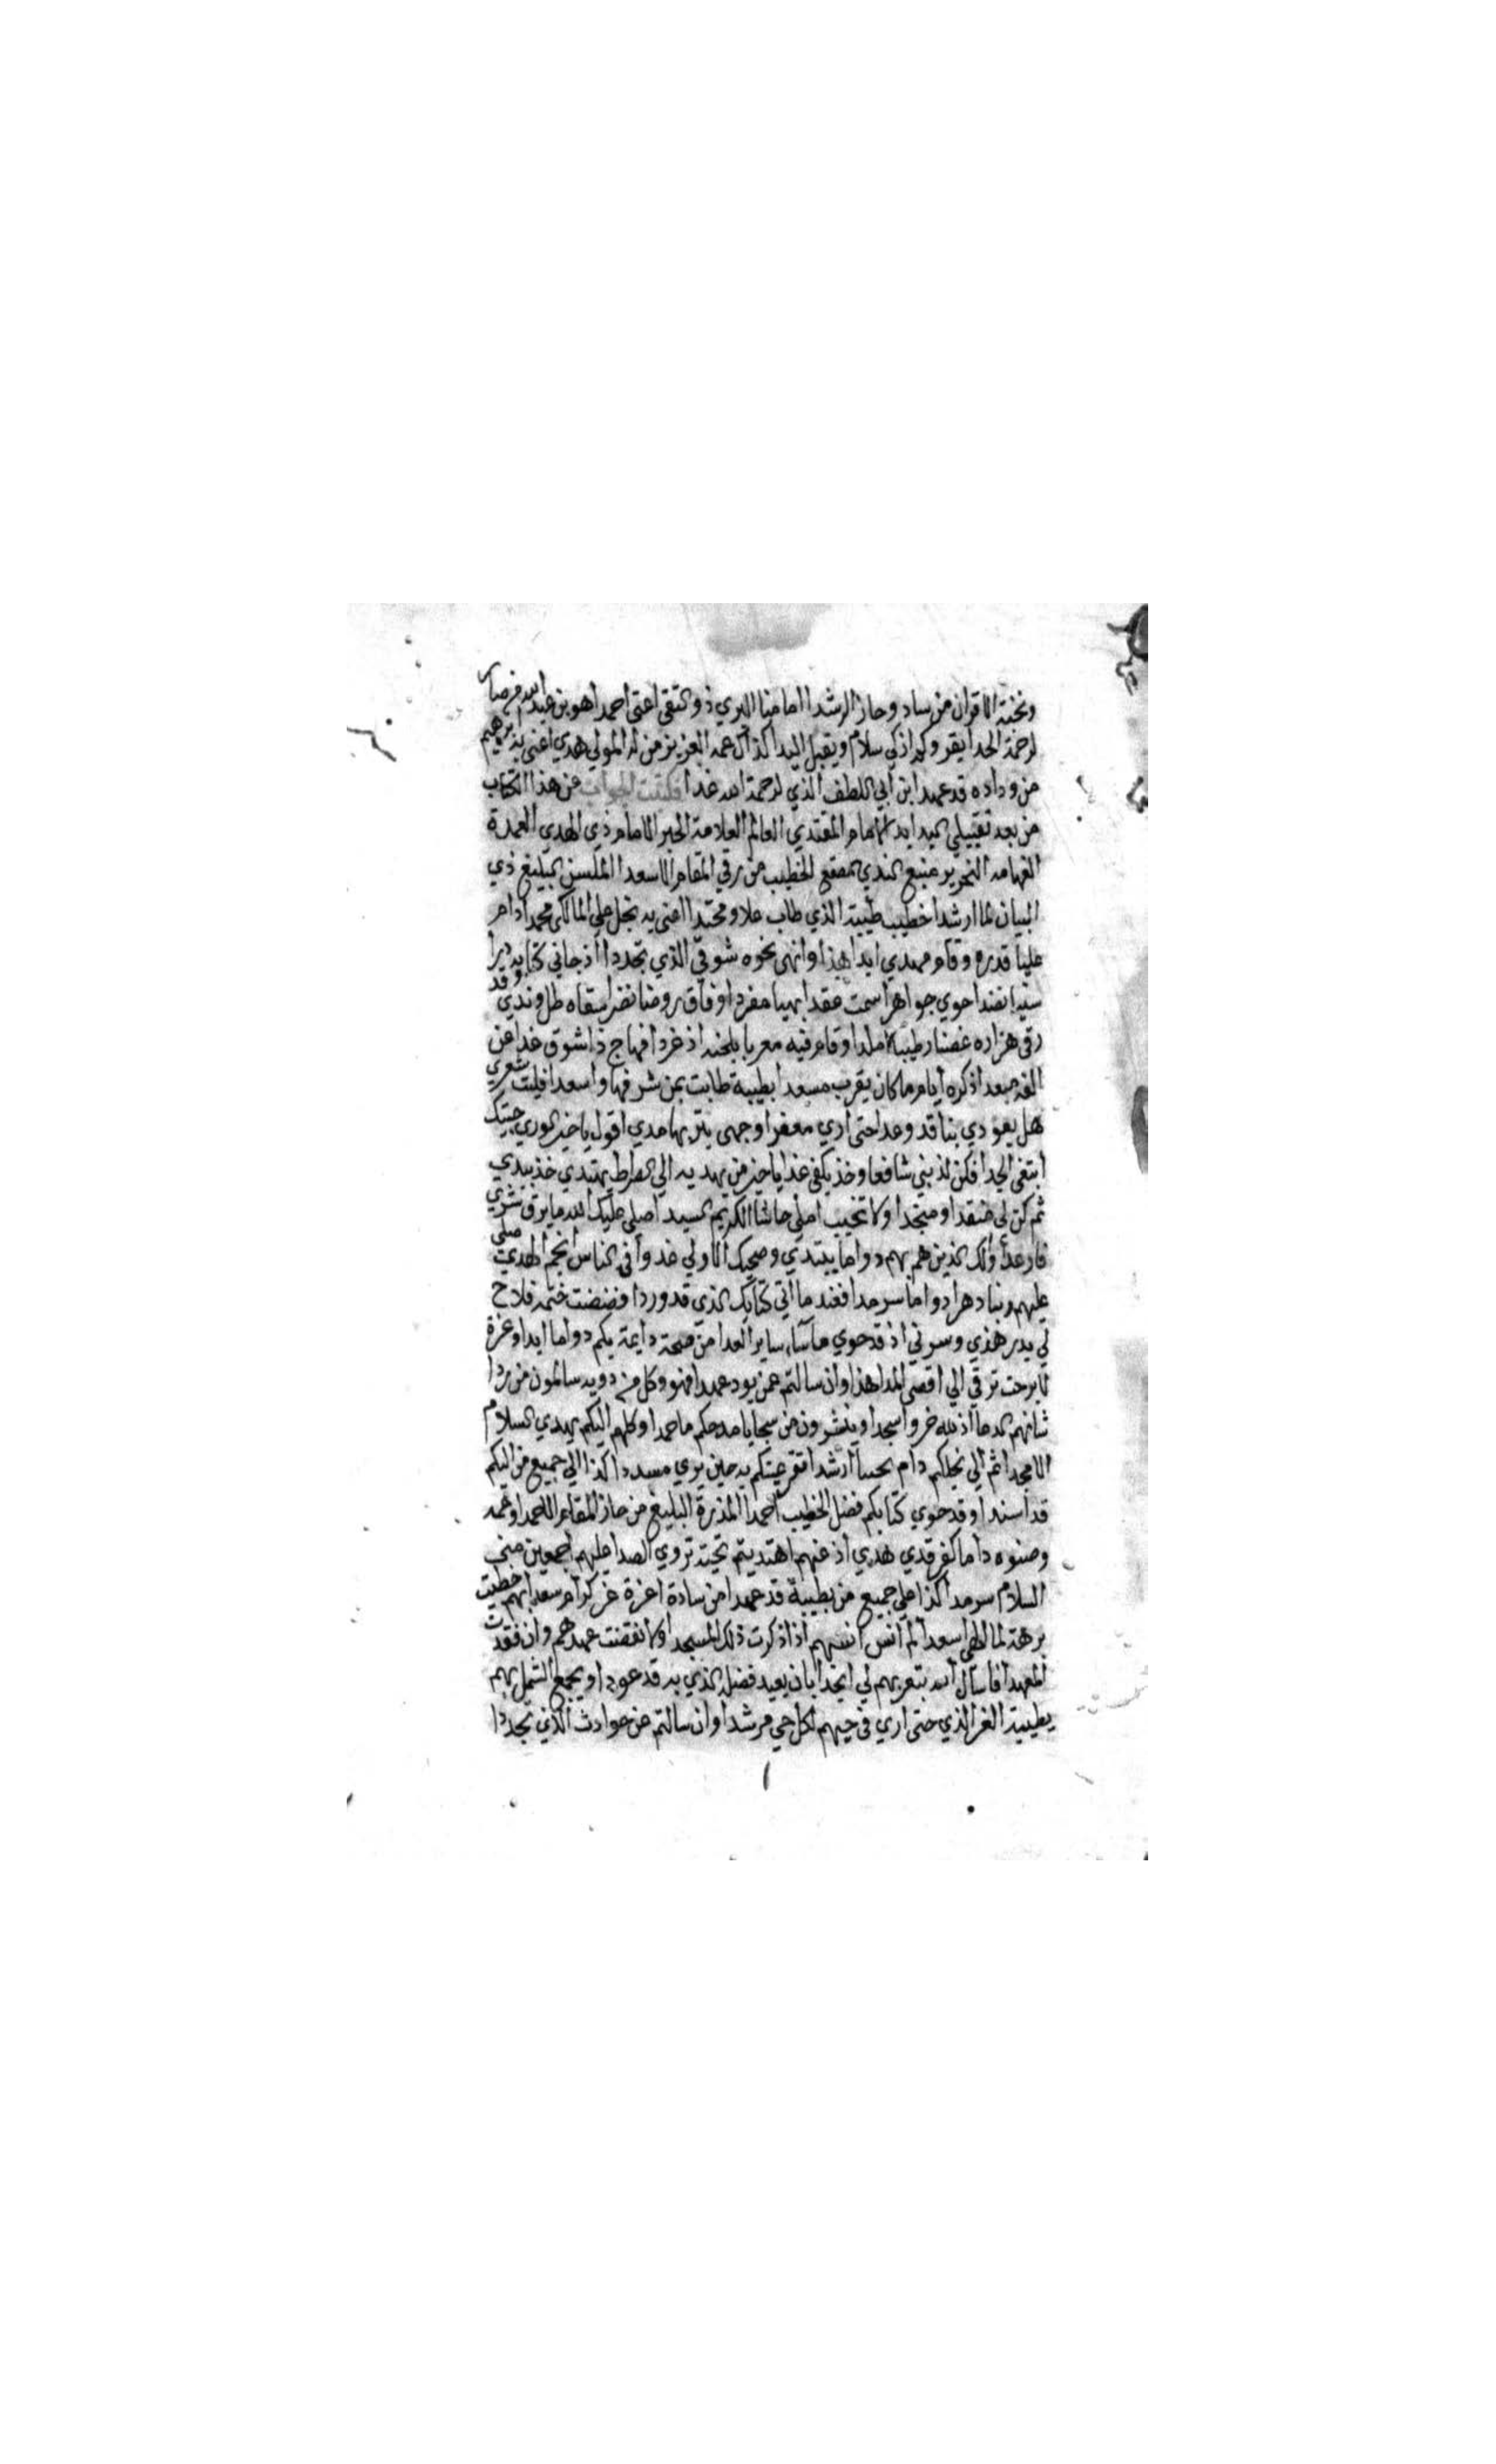 ونخبة الاقران من ساد وحاز الرشدا امامنا البري ذو التقى اعني احمدا هو بن عبد الله من صار
لرحمة الحدا يقروكم ازكي سلام ويقبل اليدا كذاك عمه العزيز من له المولي هدي اعني به ابرهيم
من وداده قد عهدا بن ابي اللطف الذي لرحمة الله غدا فكتبت الجواب عن هذا الكتاب
من بعد تقبيلي ليد الهمام المقتدي العالم العلامة الحبر الامام ذي الهدي العمدة
الفهامه النحرير منبع الندي المصقع الخطيب من رقي المقام الاسعدا الملسن البليغ ذي
البيان لما ارشدا خطيب طيبة الذي طاب علا ومحتدا اعني به نجل علي المالكي محمدا دام
علينا قدره وقام مهدي ابدا هذا وانهي نحوه شوقي الذي تجددا اذ جاني كتابه درا
سنيا نضدا حوي جواهرا سمت عقدا بهيا مفردا وفاق روضا نضرا سقاه طل وندي وقد
رقي هزاره غصنا رطيبا املدا وقام فيه معربا بلحنه اذ غردا فهاج ذا شوق غدا عن
الفه مبعدا ذكره ايام ما كان بقرب مسعدا بطيبة طابت بمن شرفها واسعدا فليت شعري
هل يعودي بنا قد وعدا حتى اري معفرا وجهي بتربها مدي اقول يا خير الوري جيتك
ابتغي الجدا فكن لذبني شافعا وخذ بكفي غدا يا خير من يهديه الي الصراط يهتدي خذ بيدي
ثم كن لي منقدا ومنجدا ولا تخيب املي حاشا الكريم السيدا صلي عليك الله ما برق شري
فارعدا والك الذين هم بهم دواما يبتدي وصحبك الاولي غدوا في الناس انجم الهدي صلي
عليهم ربنا دهرا دواما سرمدا فعند ما اتي كتابك الذي قد وردا فضضت ختمه فلاح
لي بدر هذي وسرني اذ قد حوي ما ساء ساير العدا من صحة دايمة بكم دواما ابدا وعزة
لا برحت ترقي الي اقصي المدا هذا وان سالتم عمن يود عهدا فهو وكل من ذويه سالمون من ردا
شانهم الدعا اذ لله خروا سجدا وينشرون من سجايا مدحكم ما حمدا وكلهم اليكم يهدي السلام
الامجدا ثم الي نجلكم دام نجيبا ارشدا تقر عينكم به حين يري مسددا كذا الي جميع من اليكم
قد اسندا وقد حوي كتابكم فضل الخطيب احمدا المذرة البليغ من حاز المقام الاحمدا وعمه
وصنوه داما كفرقدي هدي اذ عنهم اهتديتم تحية تروي الصدا عليهم اجمعين مني
السلام سرمدا كذا علي جميع من بطيبة قد عهدا من سادة اعزة غر كرام سعدا بهم حظيت
برهة لما الهي اسعدا لم انس انسهم اذا ذكرت ذلك المسجدا ولا نقضت عهدهم وان فقدت
المعهدا فاسال الله بتقربهم لي انجدا بان يعيد فضله الذي به قد عودا ويجمع الشمل بهم
بطيبة الغر الذي حتى اري في حيهم لكل حي مرشدا وان سالتم عن حوادث الذي تجددا